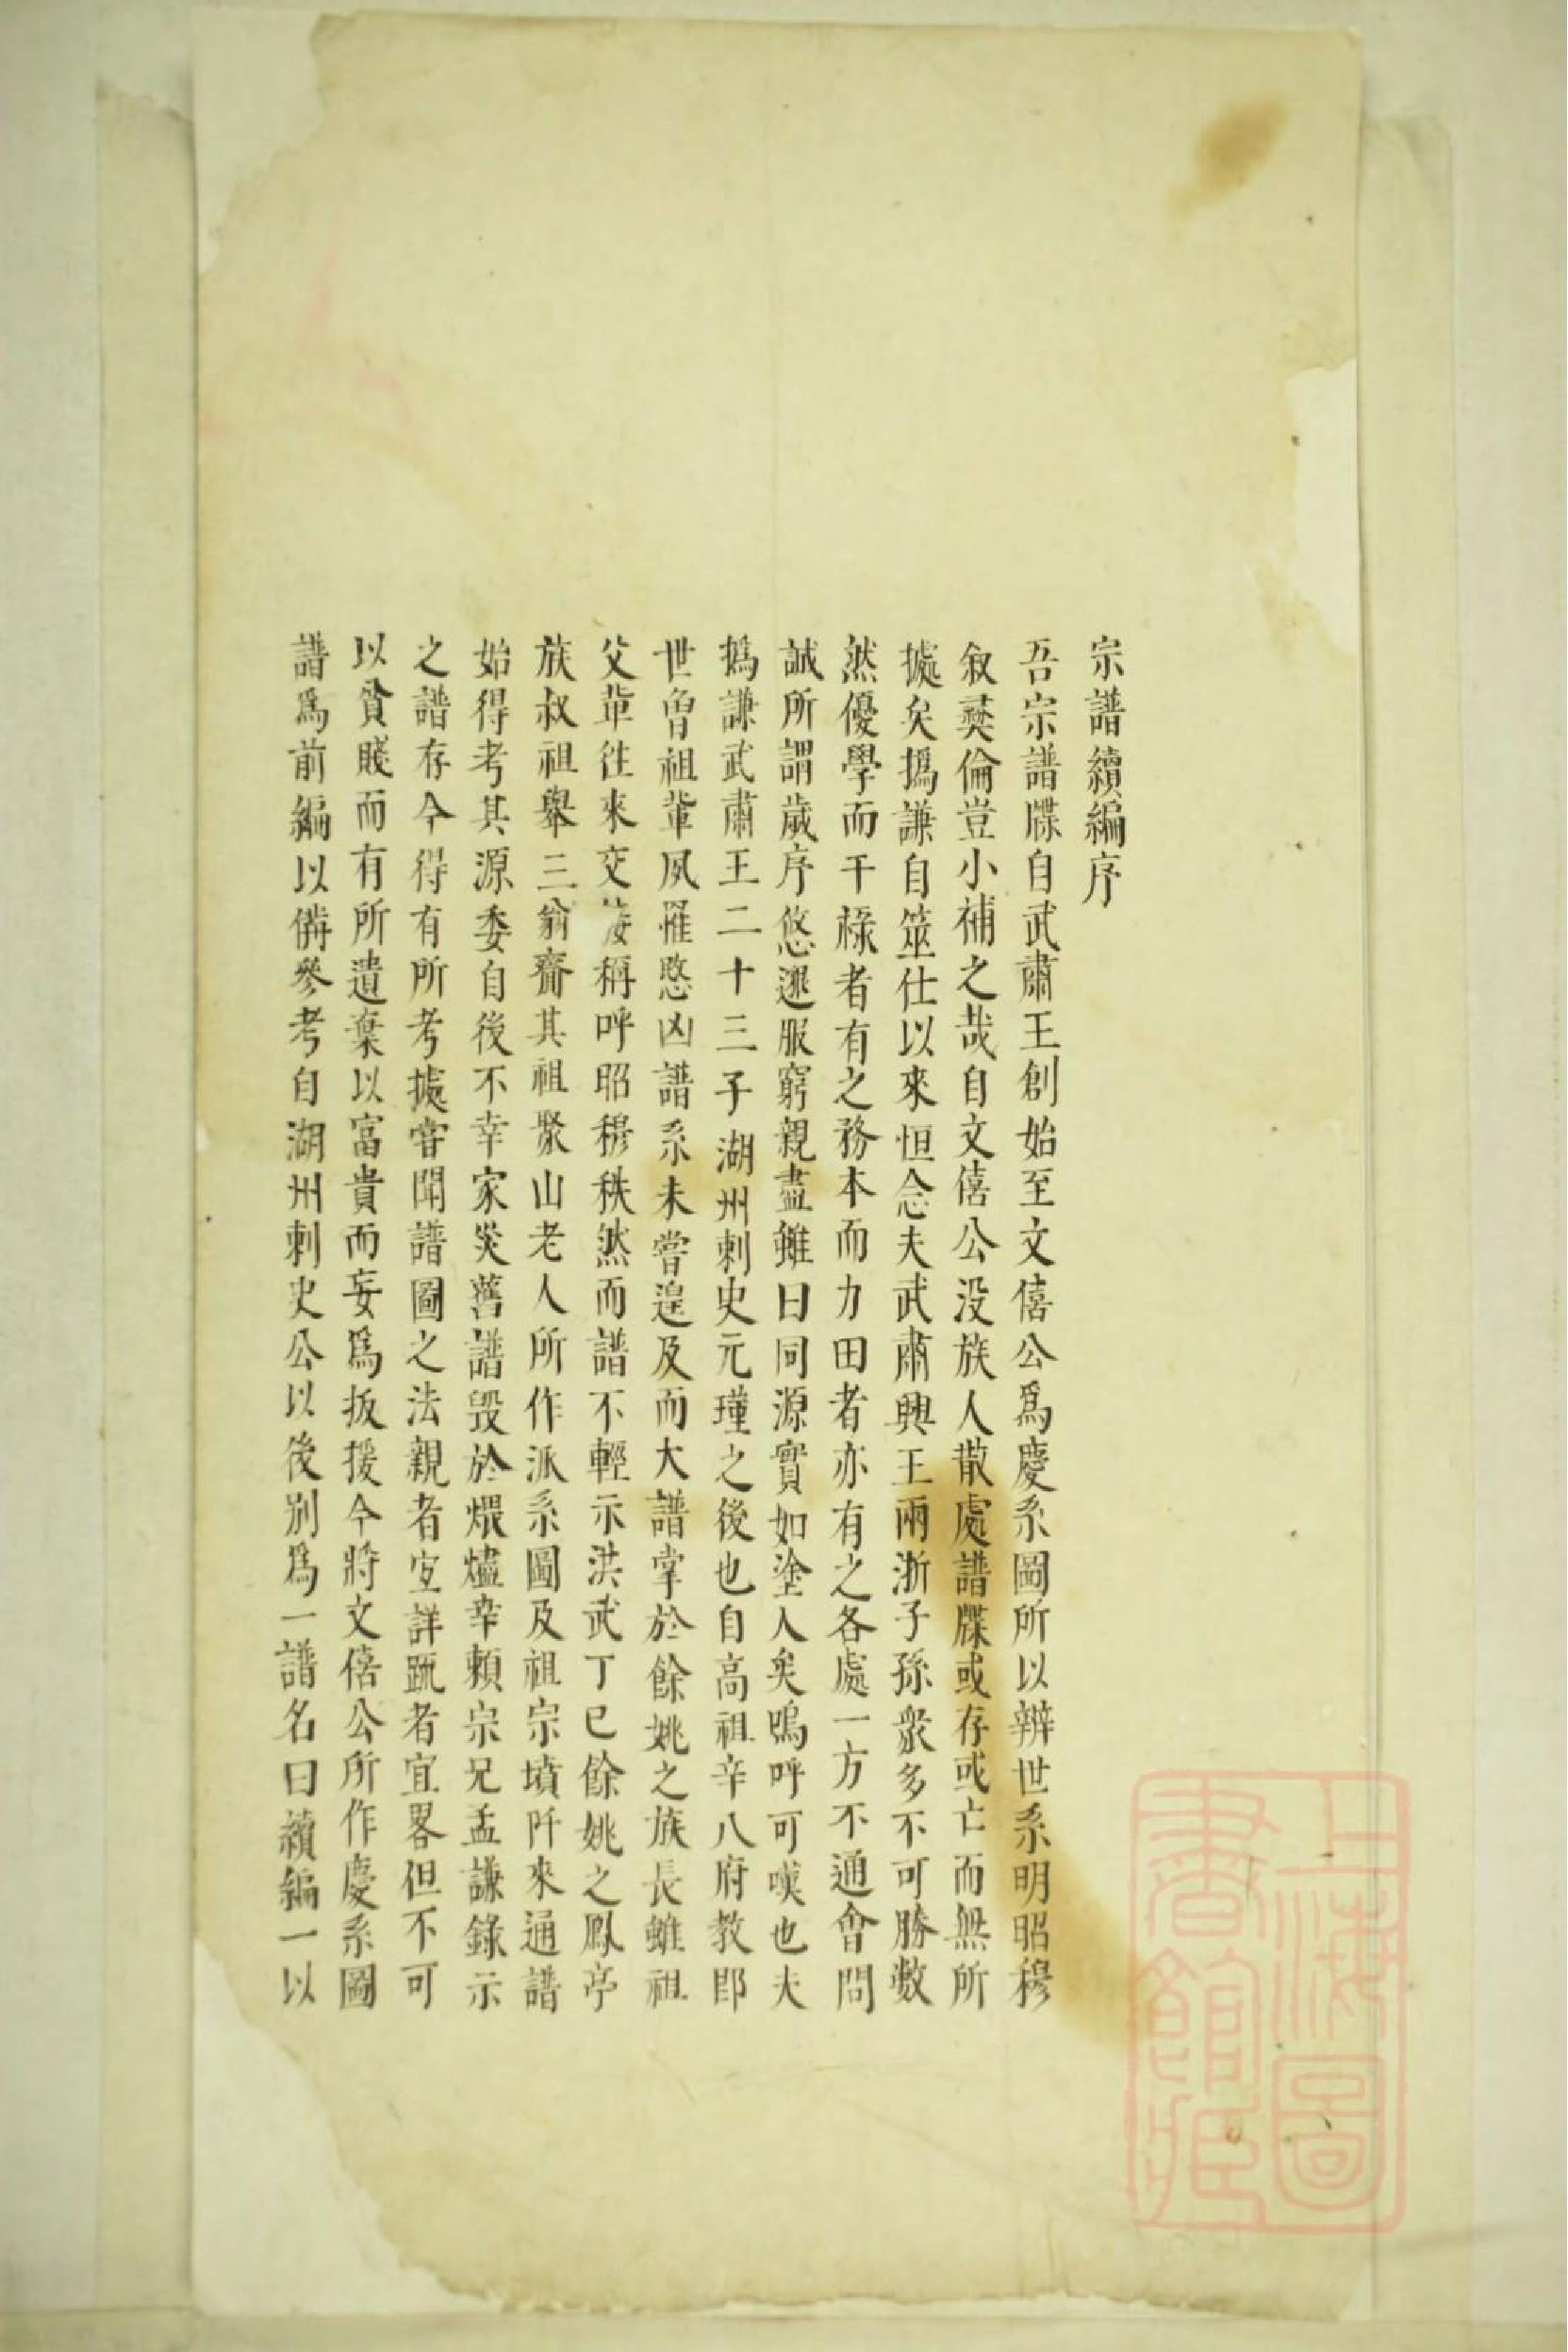 宗譜續編序
吾宗譜牒自武肅王創始至文僖公爲慶系圖所以辨世系明昭穆
叙彛倫豈小補之哉自文僖公没族人散處譜牒或存或亡而無所
據矣撝謙自筮仕以來恒念夫武肅興王兩浙子孫衆多不可勝數
然優學而干祿者有之務本而力田者亦有之各處一方不通會問
誠所謂歲序悠遝服窮親盡雖曰同源實如塗人矣嗚呼可嘆也夫
撝謙武肅王二十三子湖州刺史元瓘之後也自高祖辛八府教郎
世曾祖輩夙罹愍凶譜系未嘗遑及而大譜掌於餘姚之族長雖祖
父輩往來交接稱呼昭穆秩然而譜不輕示洪武丁巳餘姚之鳳亭
族叔祖舉三翁齎其祖聚山老人所作派系圖及祖宗墳阡來通譜
始得考其源委自後不幸家災舊譜毁於煨燼幸賴宗兄孟謙錄示
之譜存今得有所考據嘗聞譜圖之法親者宜詳䟽者宜畧但不可
以貧賤而有所遺棄以富貴而妄爲扳援今將文僖公所作慶系圖
譜爲前編以備參考自湖州刺史公以後别爲一譜名曰續編一以
上海圖
書館藏